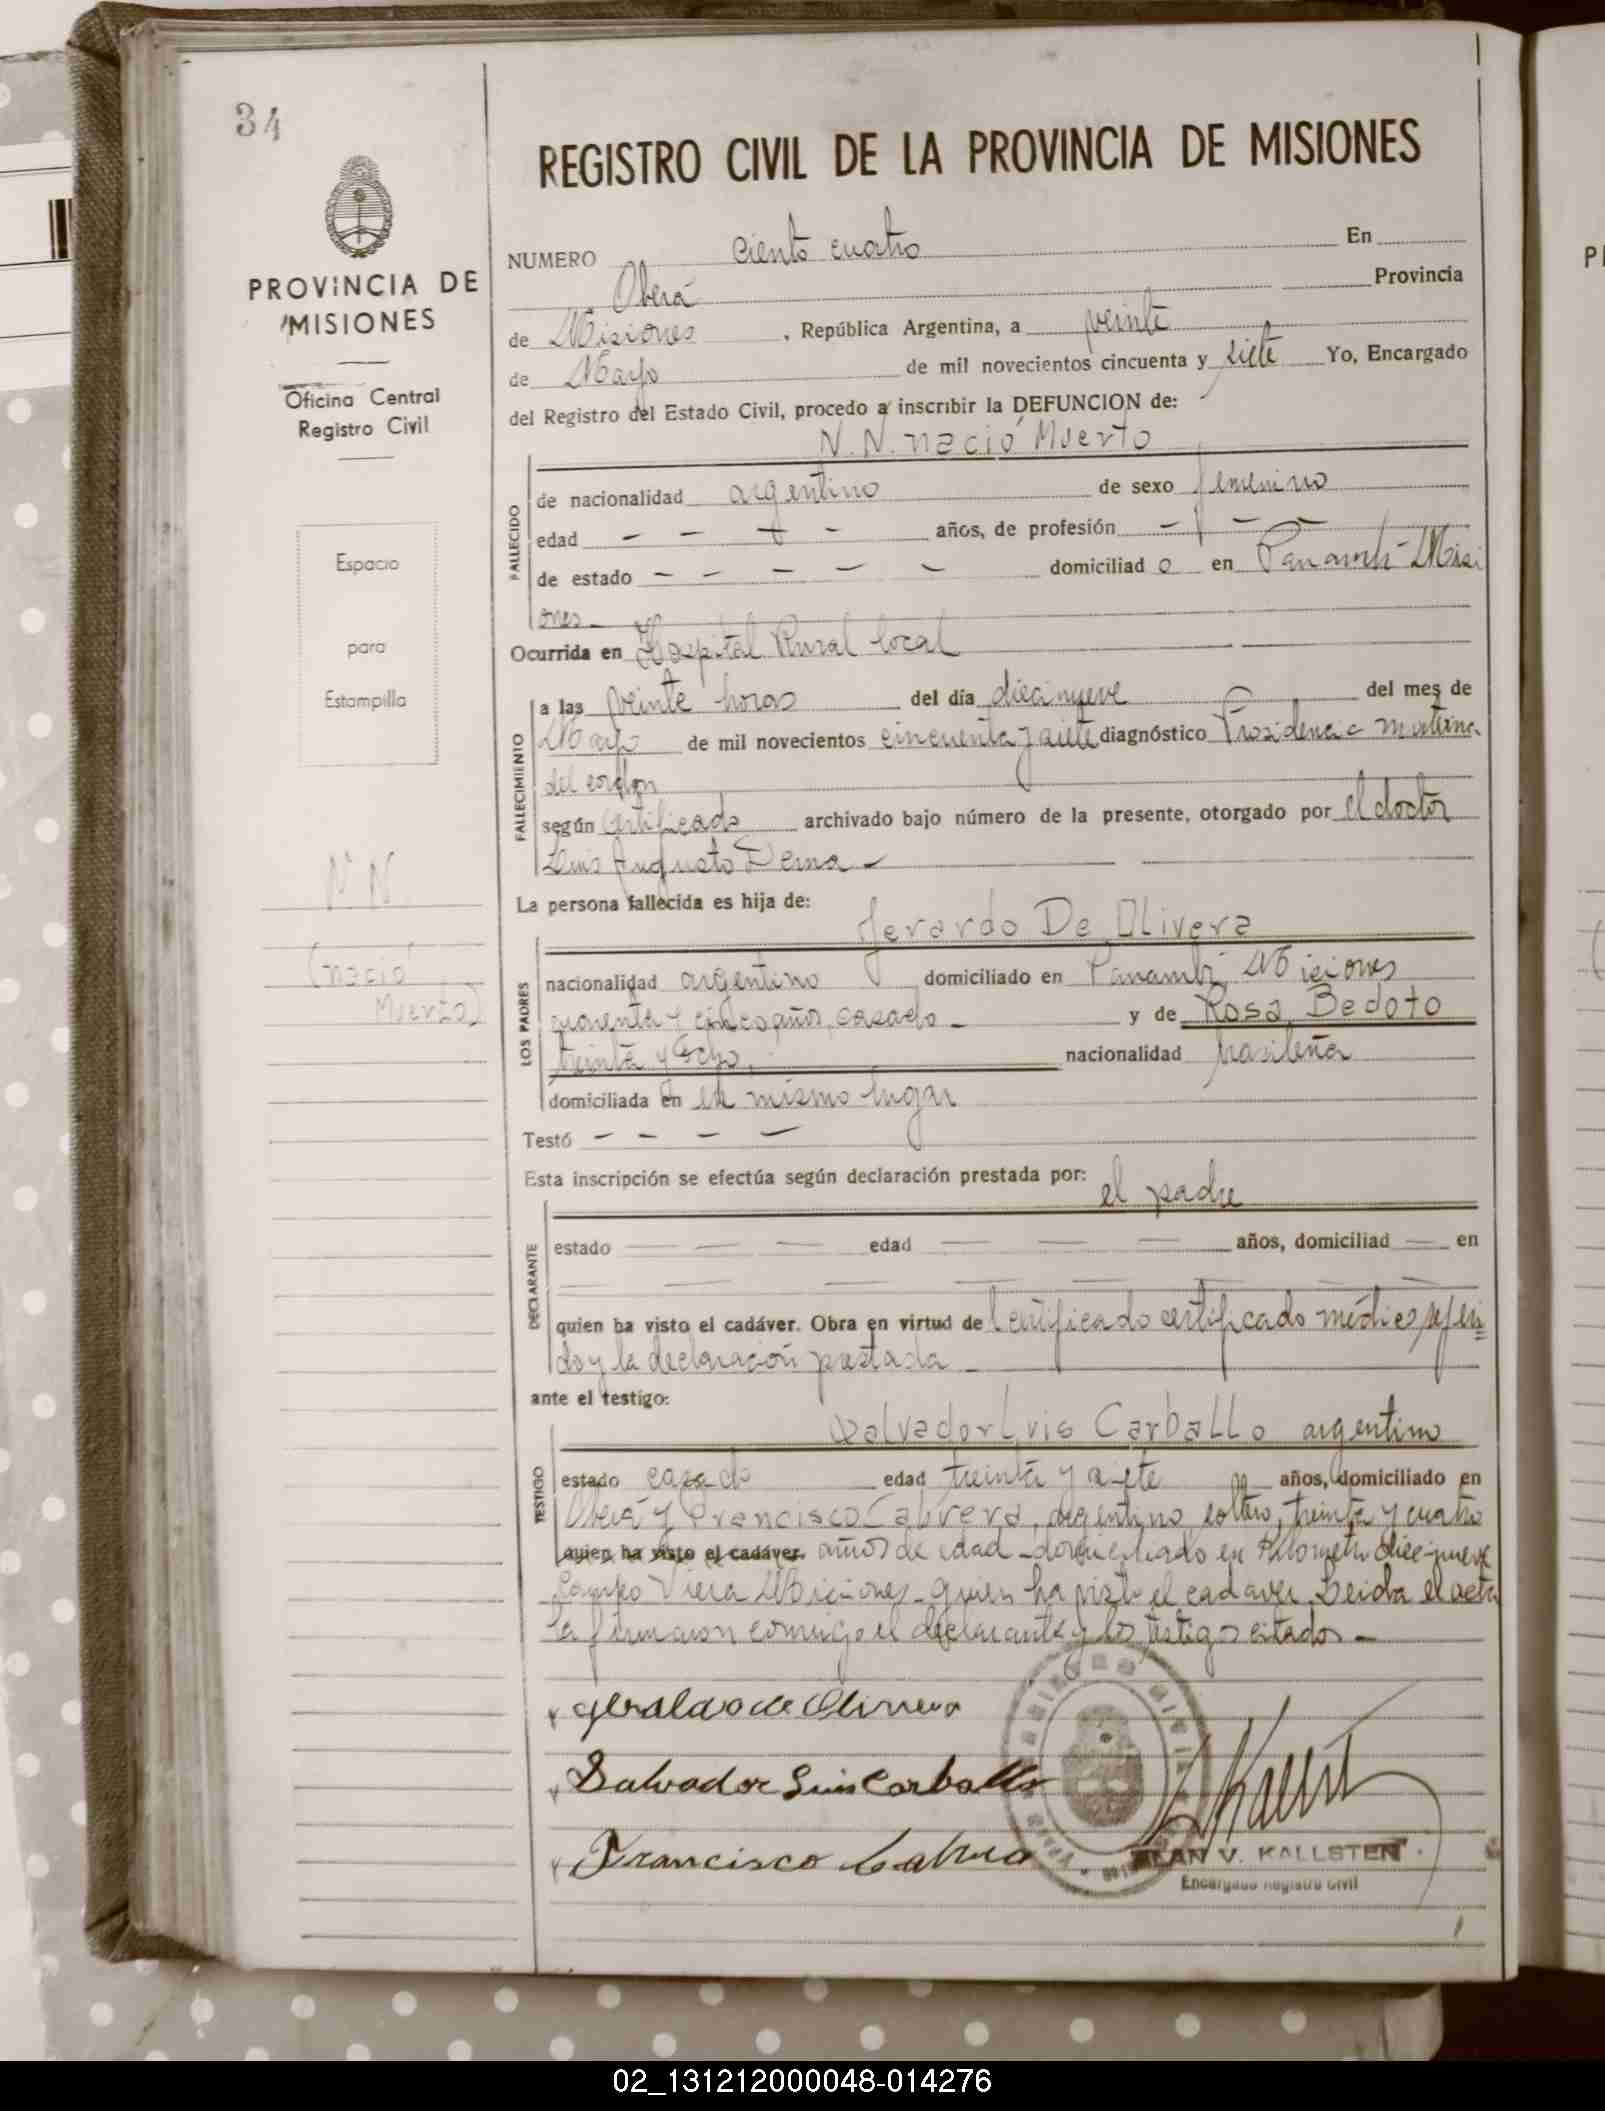 34
REGISTRO CIVIL DE LA PROVINCIA DE MISIONES
PROVINCIA DE
MISIONES
Oficina Central
Registro Civil
Espacio
para
Estampilla
N N.
(nació
Muerto)
NUMERO ciento cuatro En
Oberá Provincia
de Misiones, República Argentina, a veinte
de Mayo de mil novecientos cincuenta y siete Yo, Encargado
del Registro del Estado Civil, procedo a inscribir la DEFUNCION de:
N. N. nació Muerto
FALLECIDO
de nacionalidad argentino de sexo femenino
edad — — — — años, de profesión — — —
de estado — — — — — domiciliad o en Panambí - Misi
ones -
Ocurrida en Hospital Rural local
FALLECIMIENTO
a las veinte horas del día diecinueve del mes de
Mayo de mil novecientos cincuenta y siete diagnóstico
del cordon
según certificado archivado bajo número de la presente, otorgado por el doctor
Luis Augusto Derna -
La persona fallecida es hija de:
Gerardo De Olivera
LOS PADRES
nacionalidad argentino domiciliado en Panambí, Misiones
cuarenta y cinco años, casado - y de Rosa Bedoto
treinta y ocho, nacionalidad brasileña
domiciliada en el mismo lugar
Testó — — — —
Esta inscripción se efectúa según declaración prestada por:
el padre
DECLARANTE
estado — — — edad — — — años, domiciliad — en
— — — — — — — —
quien ha visto el cadáver. Obra en virtud de certificado médico referi
do y la declaración prestada -
ante el testigo:
Salvador Luis Carballo argentino
TESTIGO
estado casado edad treinta y siete años, domiciliado en
Oberá y Francisco Cabrera, argentino, soltero, treinta y cuatro
quien ha visto el cadáver. años de edad - domiciliado en Kilometro diecinueve
Campo Viera Misiones - quien ha visto el cadaver. Leida el acta
la firmaron conmigo el declarante y los testigos citados -
Geraldo de Olivera
Salvador Luis Carballo
Francisco Cabrera
ALAN V. KALLSTEN
Encargado Registro Civil
02_131212000048-014276